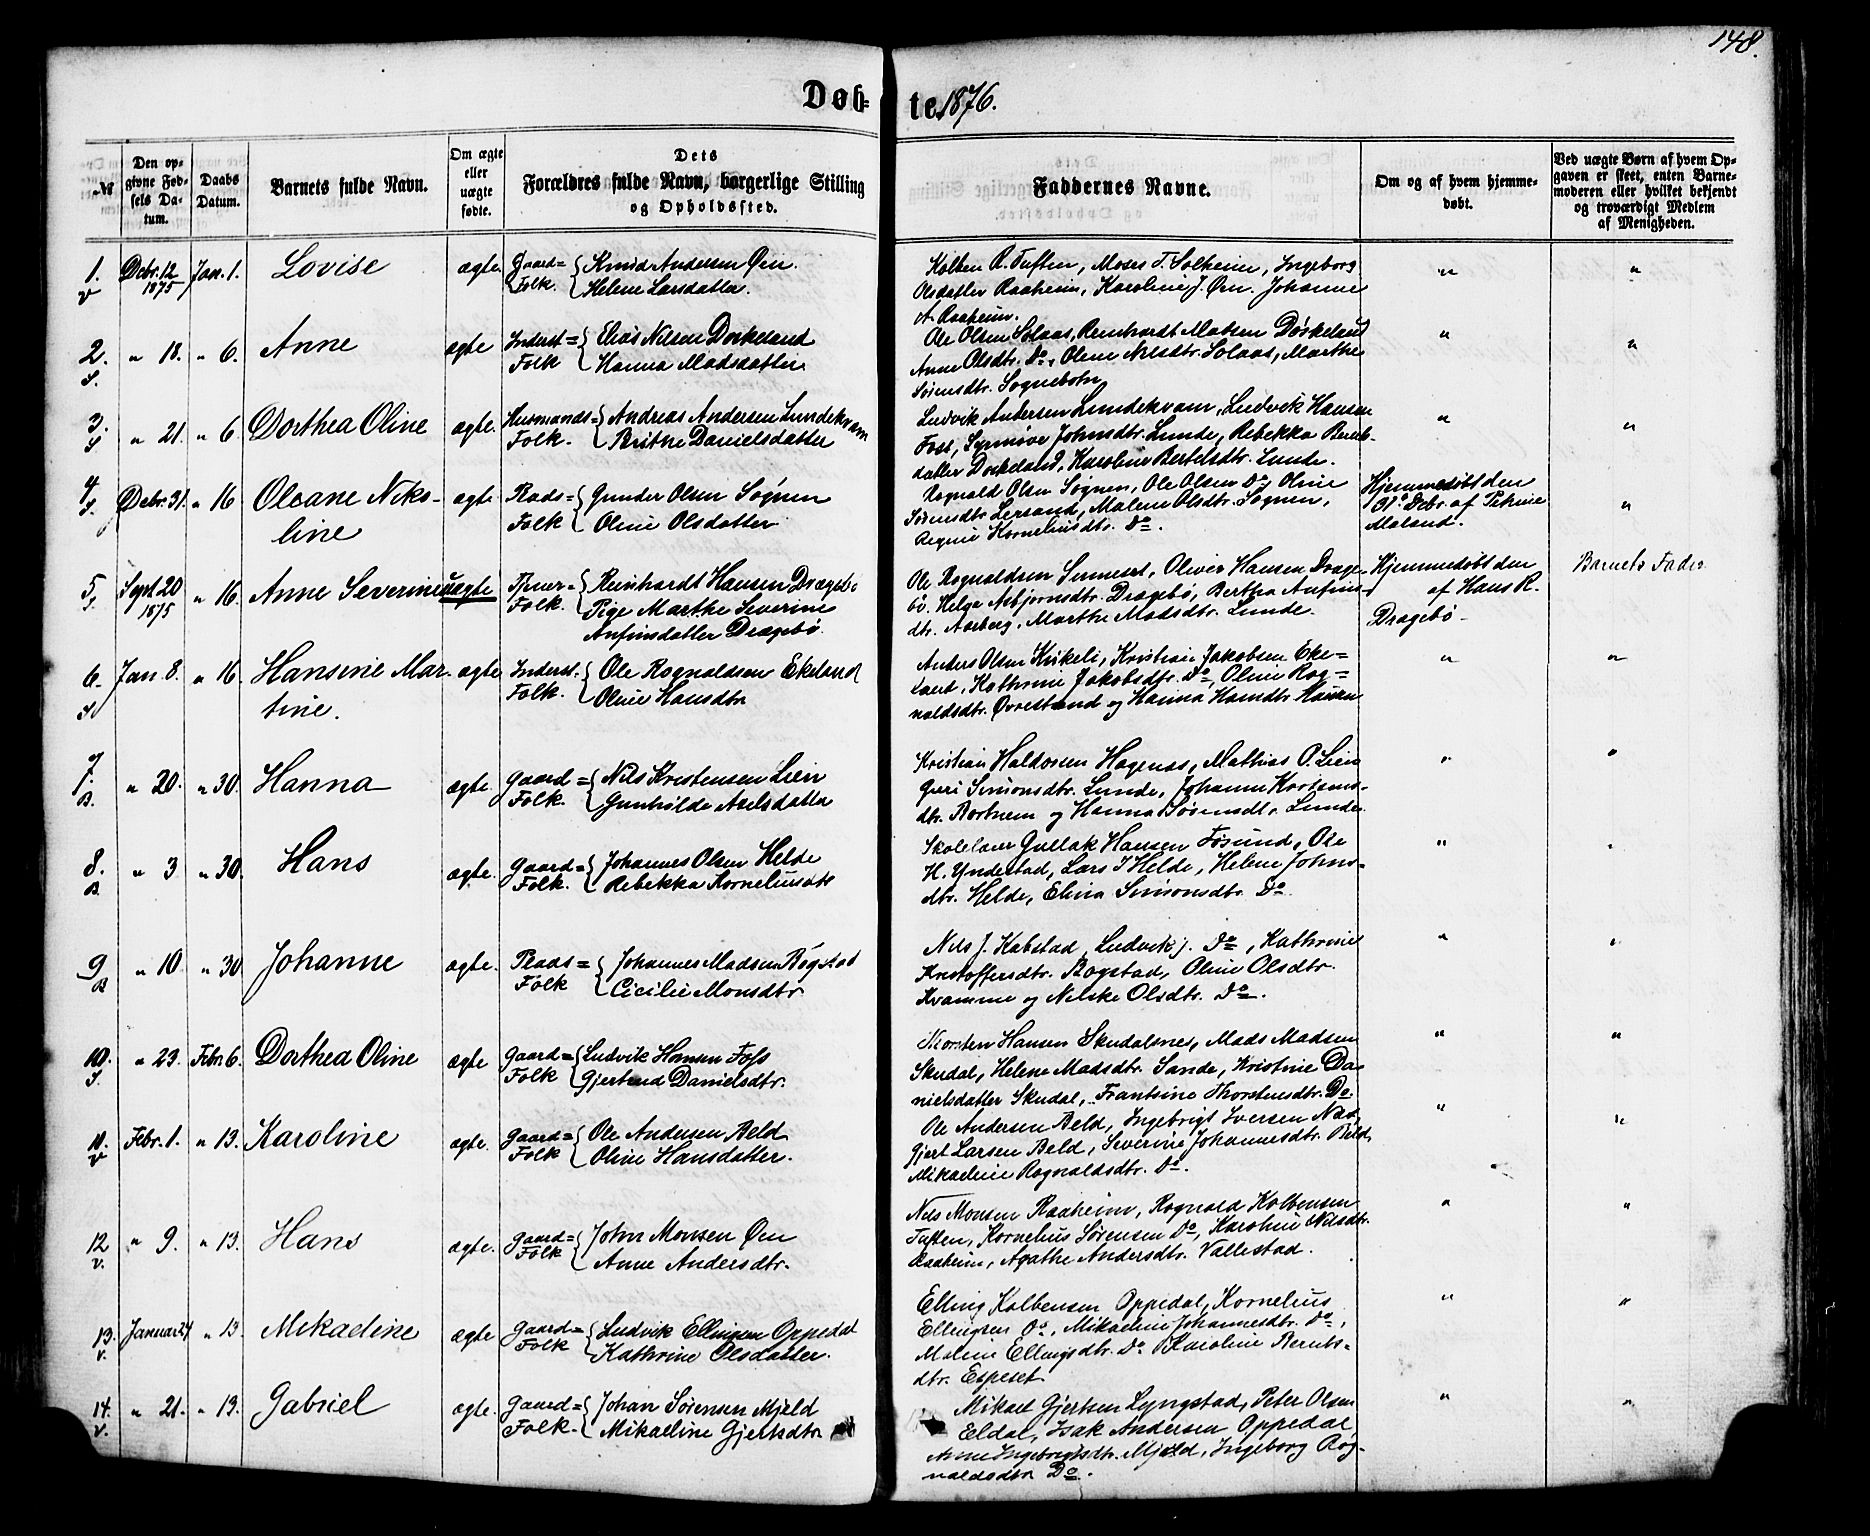 148.
Døb-te 1876.
№
Den opgivne Fødsels Datum.
Daabs Datum.
Barnets fulde Navn.
Om ægte eller uægte fødte.
Dets Forældres fulde Navn, borgerlige Stilling og Opholdssted.
Faddernes Navne.
Om og af hvem hjemmedøbt.
Ved uægte Børn af hvem Opgaven er skeet, enten Barnemoderen eller hvilket bekjendt og troværdigt Medlem af Menigheden.
1. V Decbr. 12 1875 Jan. 1. Lovise ægte Gaard= Folk. Knud Andersen Øen.
Helene Larsdatter.
Kolben R. Tuften, Moses T. Solheim, Ingeborg
Olsdatter Raaheim, Karoline J. Øen. Johanne
A. Raaheim.
" "
2. S. " 18. " 6. Anne ægte Inderst= Folk Elias Nilsen Dorkeland
Hanna Madsdatter
Ole Olsen Solaas, Reinhardt Matsen Dørkeland
Anne Olsdtr. Do, Oline Nilsdtr. Solaas, Marthe
Sørensdtr. Sognebotn
" "
3. S " 21. " 6 Dorthea Oline ægte. Husmands= Folk. Andreas Andersen Lundekvam
Brithe Danielsdatter
Ludvik Andersen Lundekvam, Ludvik Hansen
Foss, Synnøve Johnsdtr. Lunde, Rebekka Berents-
datter Dorkeland, Karoline Bertelsdtr. Lunde.
" "
4. S. Decbr. 31. " 16 Oleane Niko-
line
ægte Plads= Folk Gunder Olsen Sognen
Oline Olsdatter
Rognald Olsen Sognen, Ole Olsen Do Oline
Sørensdtr. Lersand, Malene Olsdtr. Sognen,
Regine Korneliusdtr. Do.
Hjemmedøbt den
31. Decbr. af
Maland.
"
5. S. Sept. 20 1875 " 16. Anne Severine uægte Tjener= Folk. Reinhardt Hansen Dragebø
Pige Marthe Severine
Anfinsdatter Dragebø.
Ole Rognaldsen Sunnset, Oliver Hansen Drage-
bø. Helga Asbjørnsdtr. Dragebø, Bertha Anfins-
dtr. Aarberg, Marthe Madsdtr. Lunde.
Hjemmedøbt den
af Hans R.
Dragebø-
Barnets Fader
6. S Jan. 8. " 16. Hansine Mar-
tine.
ægte Inderst. Folk. Ole Rognaldsen Ekeland
Oline Hansdtr
Anders Olsen Kirkeli, Kristian Jakobsen Eke=
land, Kathrine Jakobsdtr. Do, Oline Rog=
naldsdtr. Øvrestrand og Hanna Hansdtr. Hausen
" "
7. B. " 20. " 30. Hanna ægte. Gaard= Folk. Nils Kristensen Lien
Gunhilde Axelsdatter
Kristian Haldorsen Hagenas, Mathias O. Lien
Guri Simonsdtr. Lunde, Johanne Karstens-
dtr. Bortnem og Hanna Sørensdtr. Lunde
" "
8. B " 3 " 30. Hans ægte. Gaard= Folk. Johannes Olsen Helde
Rebekka Korneliusdtr
Skolelærer Gullak Hansen Føsund, Ole
H. Yndestad, Lars I Helde, Helene Johns-
dtr. Helde, Elina Simonsdtr. Do.
" "
9 B " 10 " 30 Johanne ægte. Plads= Folk Johannes Madsen Bogstad
Cicilie Monsdtr
Nils J. Kabstad, Ludvik J. Do, Kathrine
Kristoffersdtr. Bogstad, Oline Olsdtr.
Kvamme og Nilske Olsdtr. Do.
" "
10. S. " 23. Febr. 6. Dorthea Oline ægte Gaard= Folk Ludvik Hansen Foss
Gjertrud Danielsdtr.
Thorsten Hansen Skudalsnes, Mads Madsen
Skudal, Helene Madsdtr. Sande, Kristine Da-
nielsdatter Skudal, Frantsine Thorstensdtr. Do
" "
11. V Febr. 1. " 13. Karoline ægte. Gaard= Folk Ole Andersen Beld
Oline Hansdatter.
Ole Andersen Beld, Ingebrigt Iversen Nes
Gjert Larsen Beld, Severine Johannesdtr. Beld,
Mikaeline Rognaldsdtr. Do.
" "
12 V. " 9. " 13. Hans ægte. Gaard= Folk John Monsen Øen
Anne Andersdtr.
Nils Monsen Raaheim, Rognald Kolbensen
Tuften, Kornelius Sørensen Do, Karoline Nilsdtr.
Raaheim, Agathe Andersdtr. Vallestad.
" "
13. V. Januar 24 " 13. Mikaeline ægte Gaard= Folk Ludvik Ellingsen Oppedal
Kathrine Olsdatter.
Elling Kolbensen Oppedal, Kornelius
Ellingsen Do, Mikaeline Johannesdtr. Do,
Malene Ellingsdtr. Do Karoline Bernts-
dtr. Espeset.
" "
14. V. " 21. " 13. Gabriel ægte. Gaard= Folk. Johan Sørensen Mjeld
Mikaeline Gjertsdtr
Mikael Gjertsen Lyngstad, Peter Olsen
Eldal, Isak Andersen Oppedal
Anne Ingebrigtsdtr. Mjeld, Ingeborg Rog-
naldsdtr Do.
" "